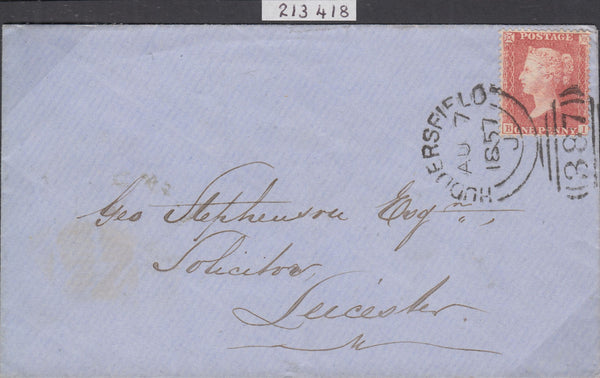 213 418
POSTAGE
E I
ONE PENNY
HUDDERSFIELD
AU 7
1857
J
387
Geo Stephenson Esqre
Solicitor
Leicester